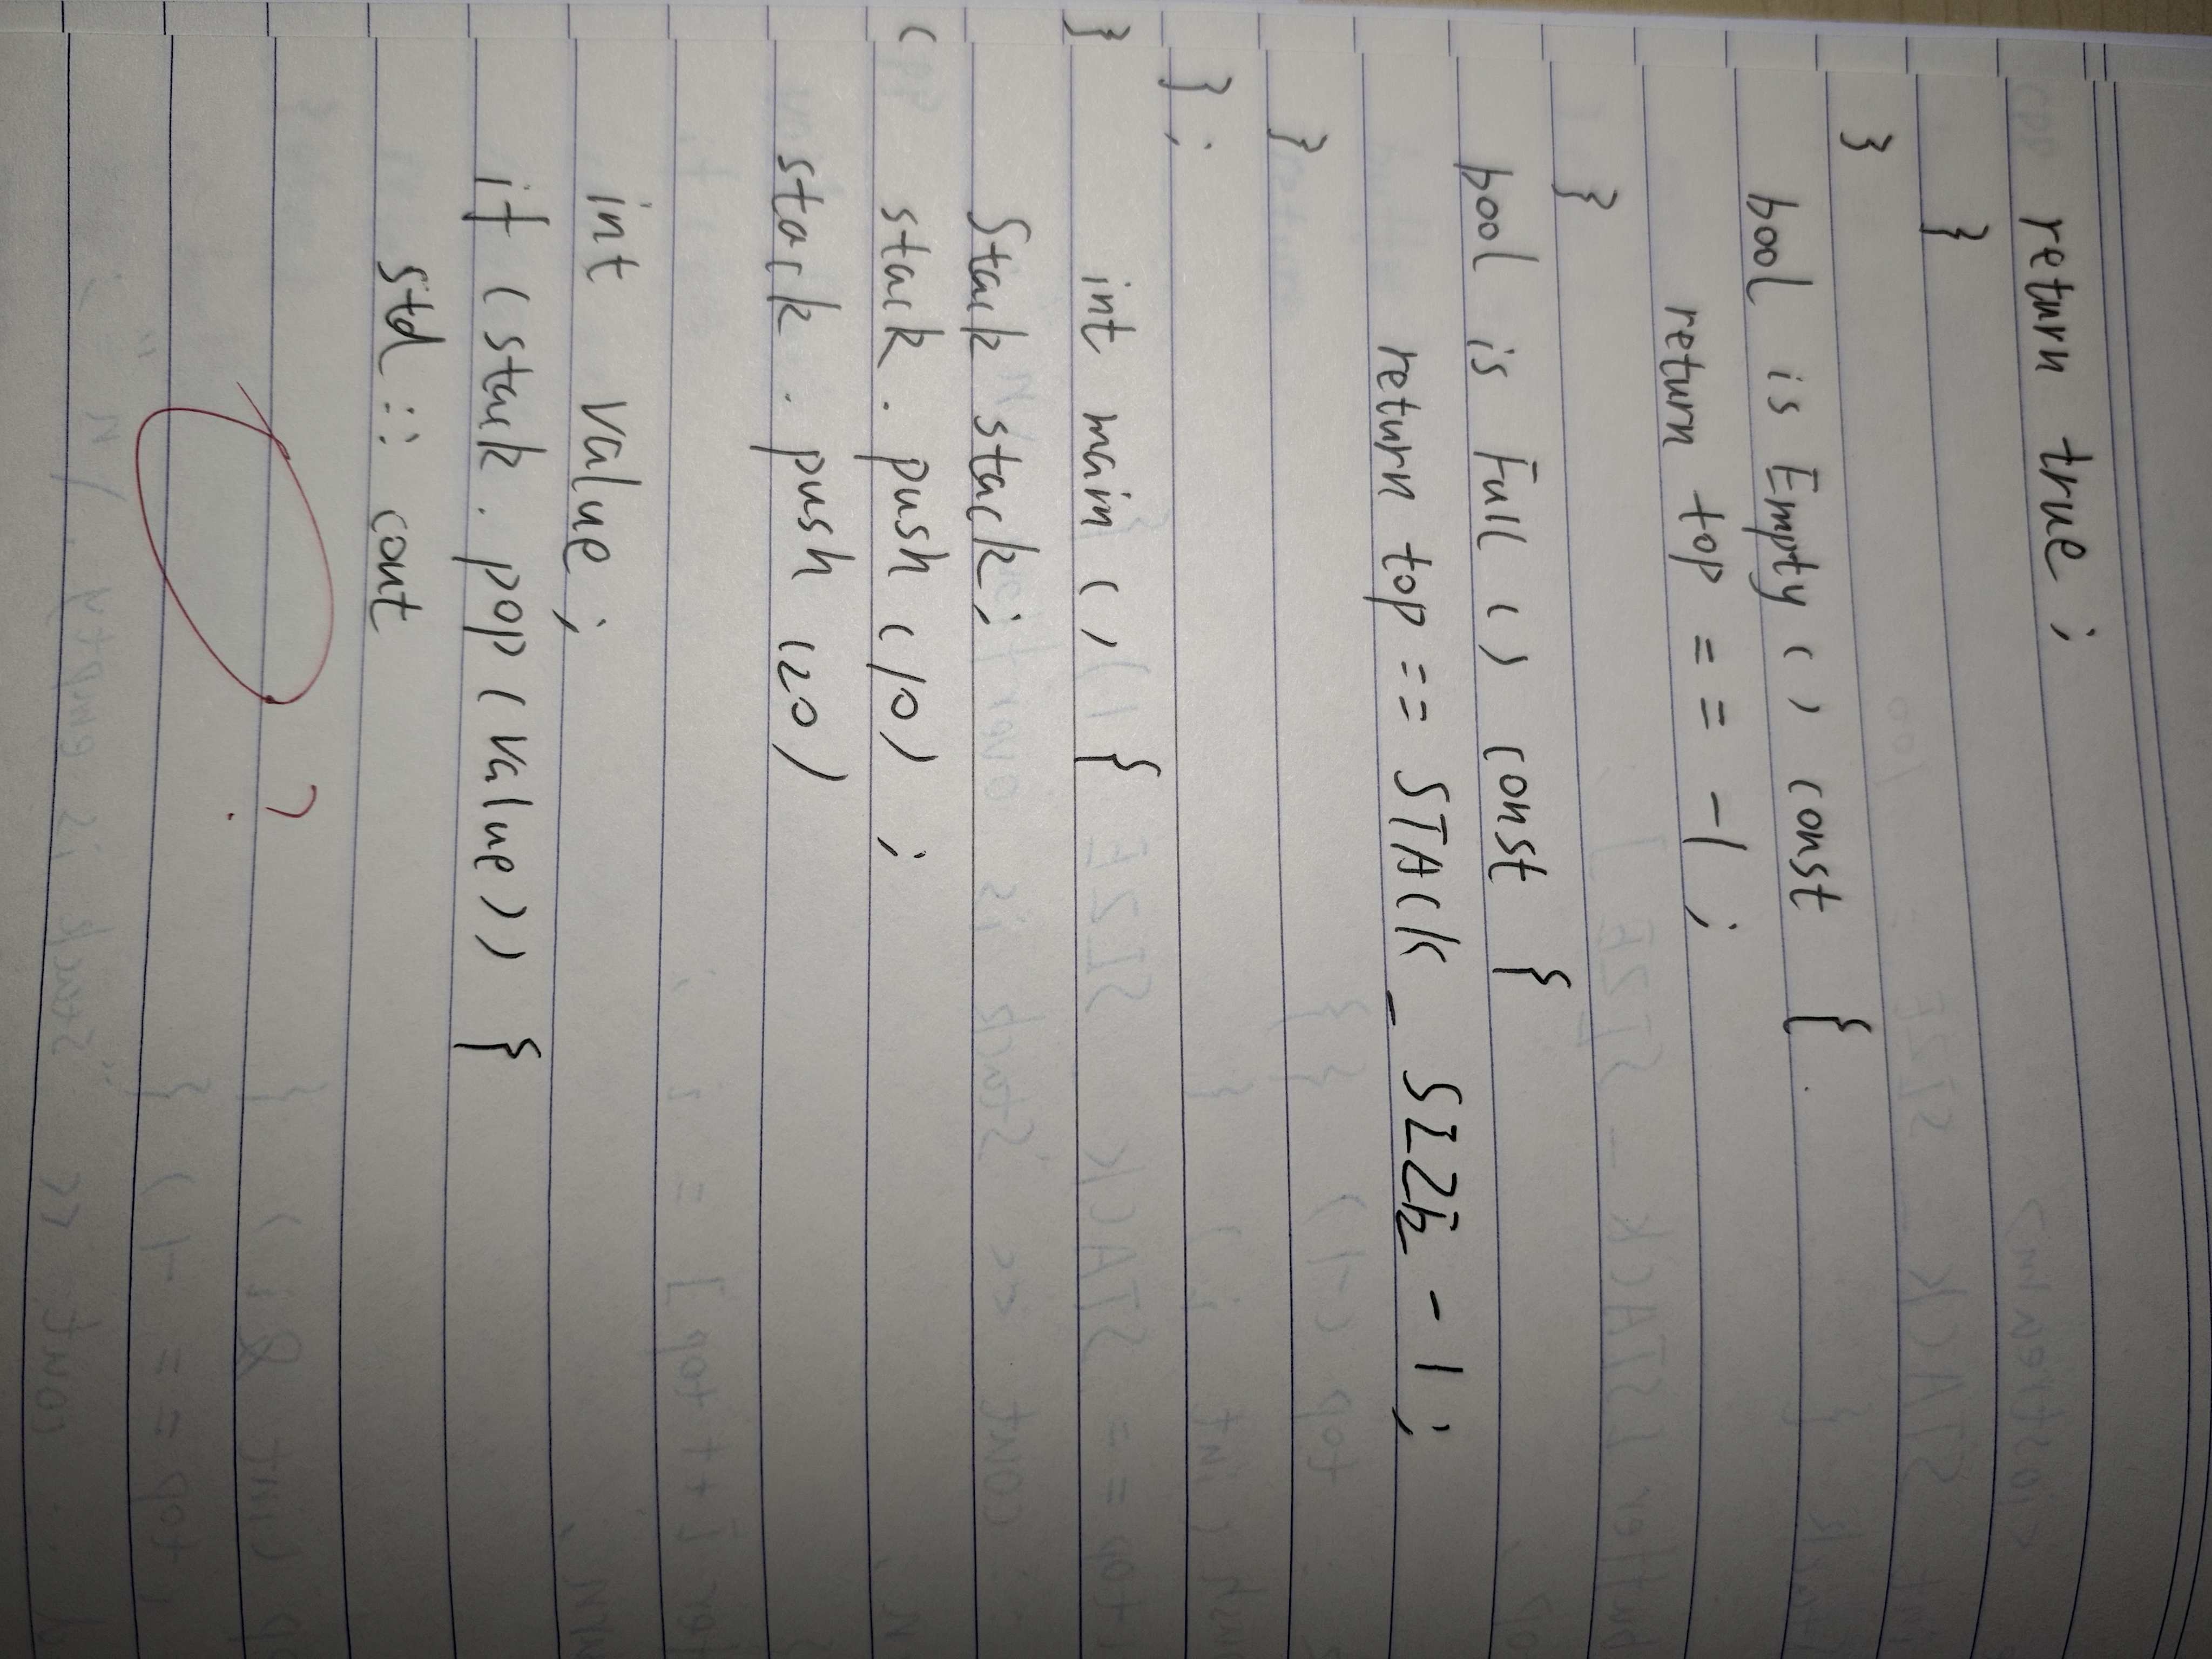 return true ;
}
}
bool is Empty ( ) const {
return top = = -1 ;
}
bool is Full ( ) const {
return top == STACK _ SIZE - 1 ;
}
} ;
} int main ( ) {
Stack stack ;
( stack . push (10) ;
stack . push (20)
int value ;
if (stack . pop (value)) {
std :: cout
?